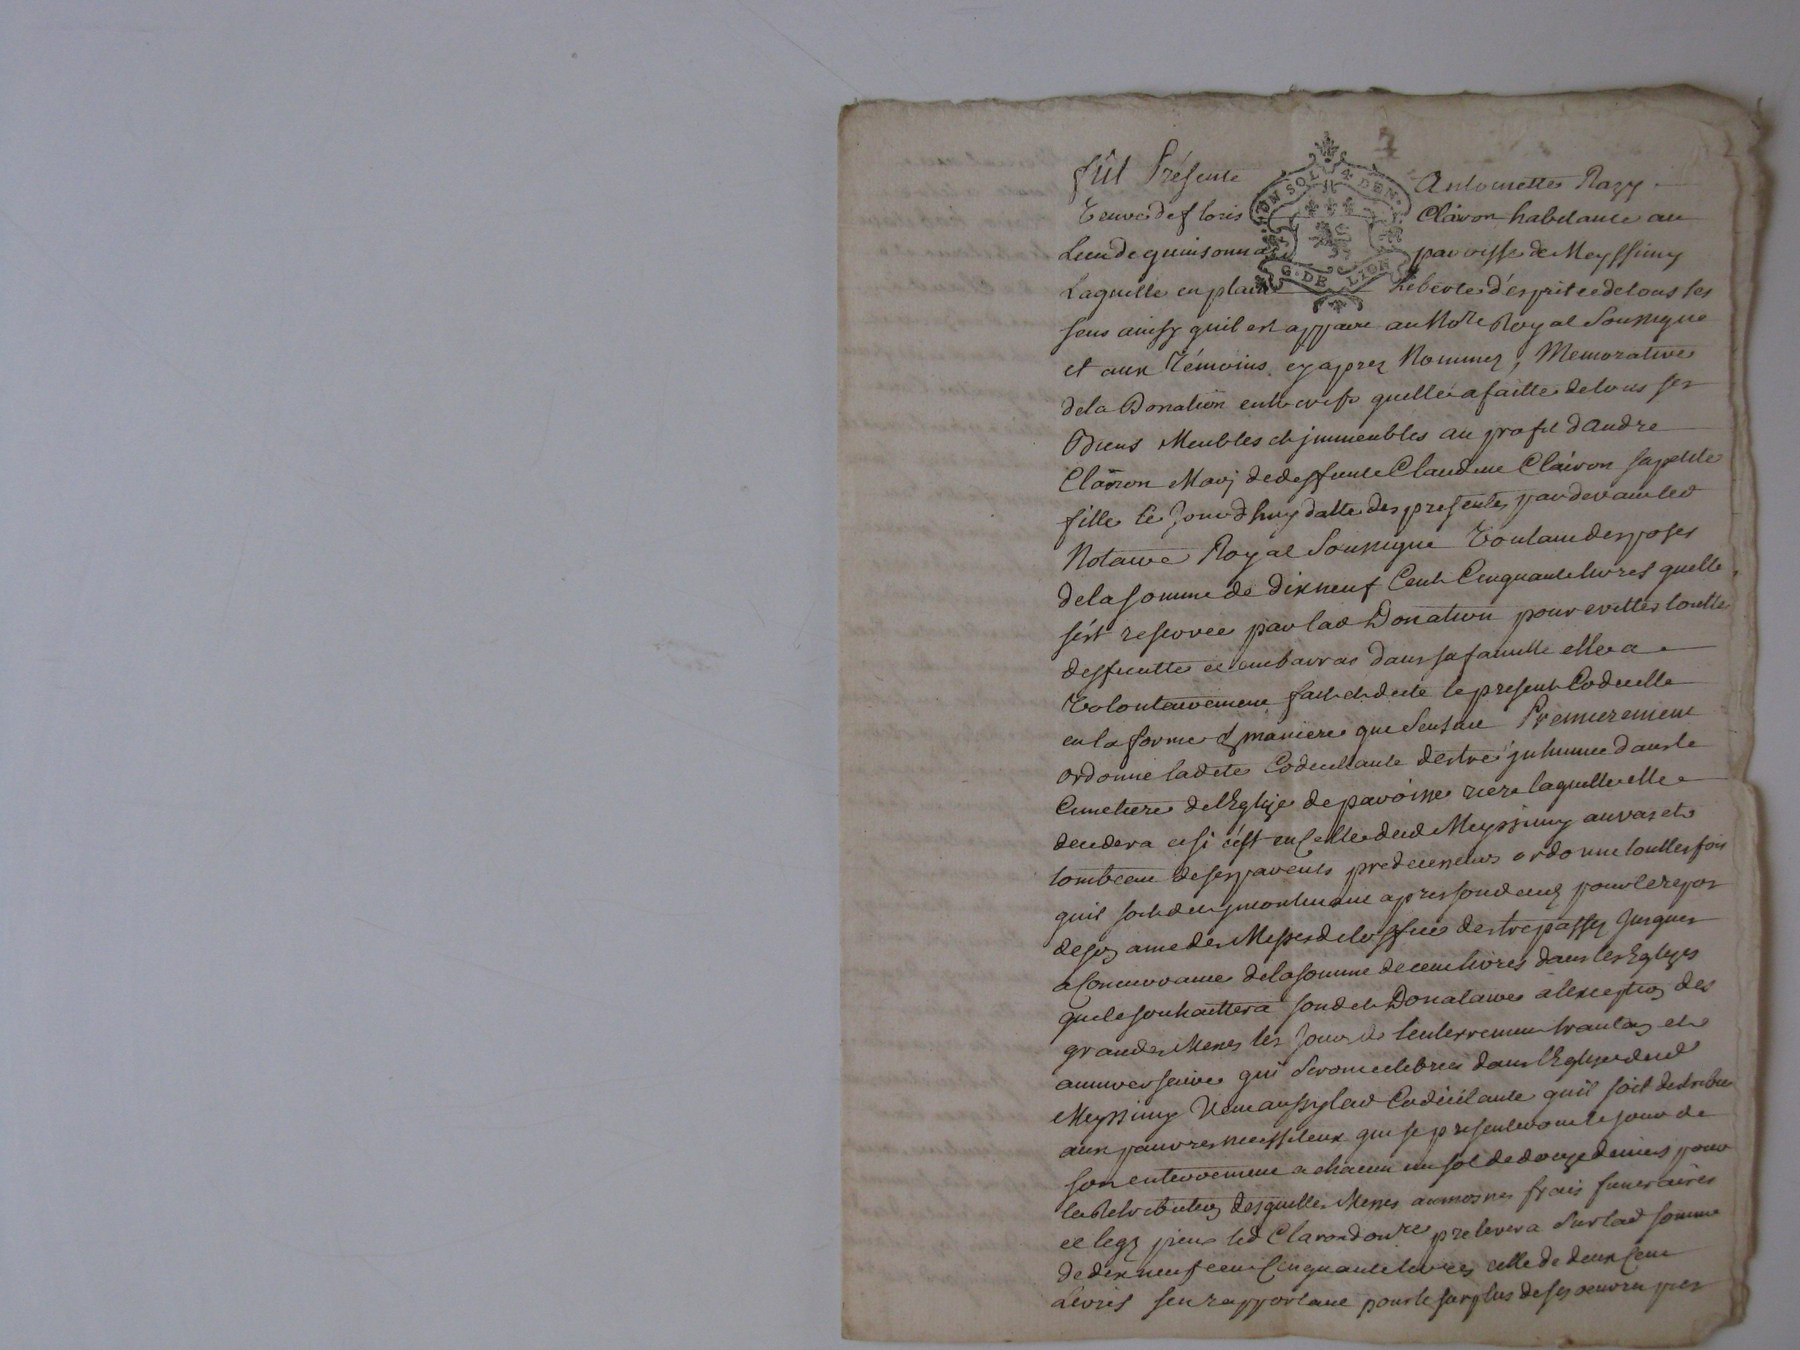 UN SOL 4 DEN
G. DE LION
fût Présente Antoinette Razy
Veuve de floris Clairon habitante au
Lieu de quinsonnat parroisse de Meyssimy
Laquelle en plaine Liberté d'esprit et de tous ses
sens ainsy quil est apparu au No.re Royal Soussigné
et aux Témoins cy aprez Nommez, Memorative
de la Donation entre vifs quelle a faitte de tous ses
Biens Meubles et jmmeubles au profit d'andré
Clairon Mary de deffunte Claudine Clairon sa petite
fille Ce Jourdhuy datte des presentes pardevant led
Notaire Royal Soussigné Voulant disposer
de la somme de Dixneuf Cent Cinquante livres quelle
s'est reservée par lad Donation pour evitter toutte
desficulté et embarras dans sa famille elle a
Volontairement fait et dicté le present Codicille
en la forme et maniere que sensuit Premierement
ordonne ladite Codicillante d'estre jnhumée dans le
Cimetiere de l'Eglize de paroisse riere laquelle elle
decedera et si c'est en Celle dud Meyssimy au vas et
tombeau de ses parents predecesseurs ordonne touttes fois
quil soit dit jncontinant apres son deces pour le repos
de son ame des Messes de loffice des trepassez Jusques
a Concurrance de la somme de cent livres dans les Eglizes
que le souhaittera son dit Donataire a lexception des
grandes Messes les Jours de l'enterrement trantain et
anniversaire qui seront celebrées dans l'Eglize dud
Meyssimy Veut aussy lad Codicilante qu'il soit distribué
aux pauvres necessiteux qui se presenteront le jour de
son enterrement a chacun un sol de douze deniers pour
la Retribution desquelles Messes aumosnes frais funeraires
et legz pieux led Clairon don.re prelevera sur lad somme
de dix neuf cent Cinquante livres celle de deux Cent
Livres sen rapportant pour le surplus de ses oeuvres pies